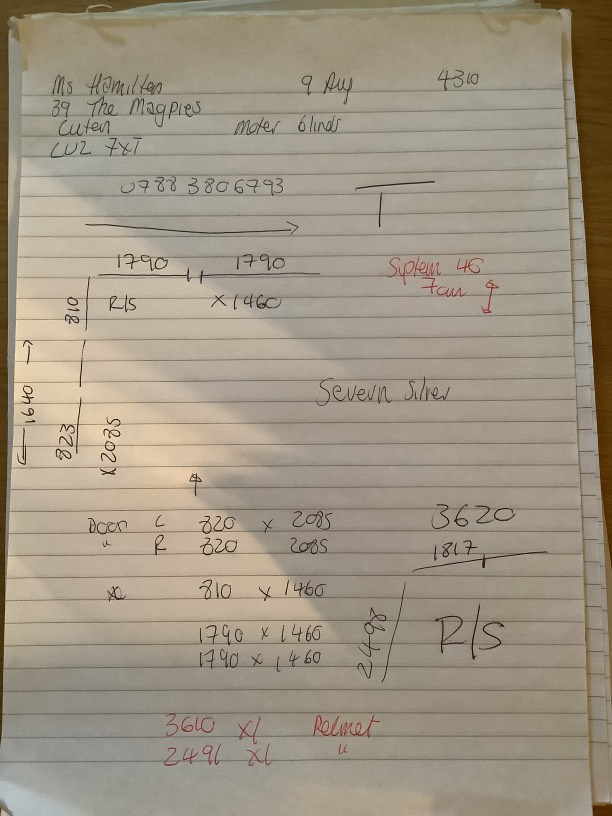 Ms Hamilton 9 Aug 4310
39 The Magpies
Luton Moter blinds
LU2 7XT
0788 3806793
1790 1790
System 46
7cm
810 R/S X1460
Severn Silver
1640
823
X2085
Door L 820 x 2085 3620
" R 820 2085 1817
810 x 1460
2498 R/S
1790 x 1460
1790 x 1460
3610 x1 Pelmet
2491 x1 "